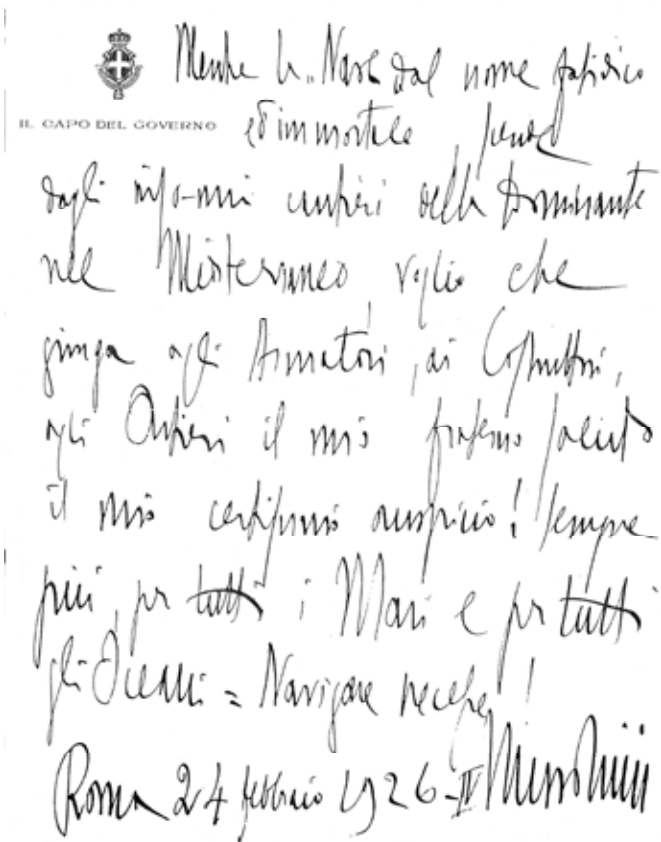 Mentre la "Nave dal nome fatidico
IL CAPO DEL GOVERNO
ed immortale, scende
dagli insonni cantieri della Dominante
nel Mediterraneo, voglio che
giunga agli Armatori, ai Costruttori,
agli Operai il mio fraterno saluto
il mio certissimo auspicio! Sempre
più, per tutti i Mari e per tutti
gli Oceani = Navigare necesse!
Roma 24 febbraio 1926-IV Mussolini